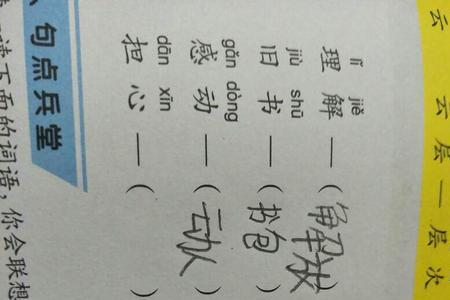 云 云层—层次
lǐ jiě
理解—(解放)
jiù shū
旧书—(书包)
gǎn dòng
感动—(动人)
dān xīn
担心—( )
、句点兵堂
读下面的词语，你会联想